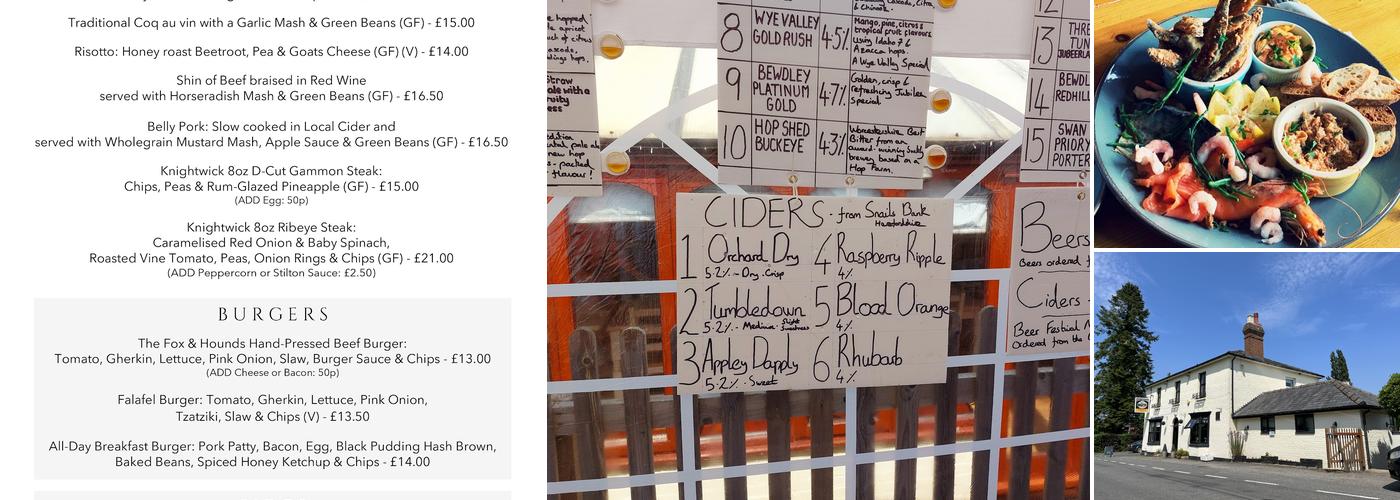 Traditional Coq au vin with a Garlic Mash & Green Beans (GF) - £15.00
Risotto: Honey roast Beetroot, Pea & Goats Cheese (GF) (V) - £14.00
Shin of Beef braised in Red Wine
served with Horseradish Mash & Green Beans (GF) - £16.50
Belly Pork: Slow cooked in Local Cider and
served with Wholegrain Mustard Mash, Apple Sauce & Green Beans (GF) - £16.50
Knightwick 8oz D-Cut Gammon Steak:
Chips, Peas & Rum-Glazed Pineapple (GF) - £15.00
(ADD Egg: 50p)
Knightwick 8oz Ribeye Steak:
Caramelised Red Onion & Baby Spinach,
Roasted Vine Tomato, Peas, Onion Rings & Chips (GF) - £21.00
(ADD Peppercorn or Stilton Sauce: £2.50)
BURGERS
The Fox & Hounds Hand-Pressed Beef Burger:
Tomato, Gherkin, Lettuce, Pink Onion, Slaw, Burger Sauce & Chips - £13.00
(ADD Cheese or Bacon: 50p)
Falafel Burger: Tomato, Gherkin, Lettuce, Pink Onion,
Tzatziki, Slaw & Chips (V) - £13.50
All-Day Breakfast Burger: Pork Patty, Bacon, Egg, Black Pudding Hash Brown,
Baked Beans, Spiced Honey Ketchup & Chips - £14.00
hopped
apricot
of citrus
Straw
ale with a
flavour!
8 WYE VALLEY GOLD RUSH 4.5%
Mango, pine, citrus &
tropical fruit flavours
Using Idaho 7 &
Azacca hops.
A Wye Valley Special
9 BEDLEY PLATINUM GOLD 4.7%
Golden, crisp &
refreshing Jubilee
Special
10 HOP SHED BUCKEYE 4.3%
Worcestershire Best
Bitter from an
award-winning
brewery based on a
Hop Farm.
12
13 THREE
14
15 SWAN
PRIORY
PORTER
CIDERS - from Snails Bank
Herefordshire
1 Orchard Dry
5.2% - Dry. Crisp
2 Tumbledown
5.2% - Medium. Slight Sweetness
3 Appley Dapply
5.2% - Sweet
4 Raspberry Ripple
4%
5 Blood Orange
4%
6 Rhubarb
4%
Beers
Beers ordered
Ciders -
Beer Festival
Ordered from the